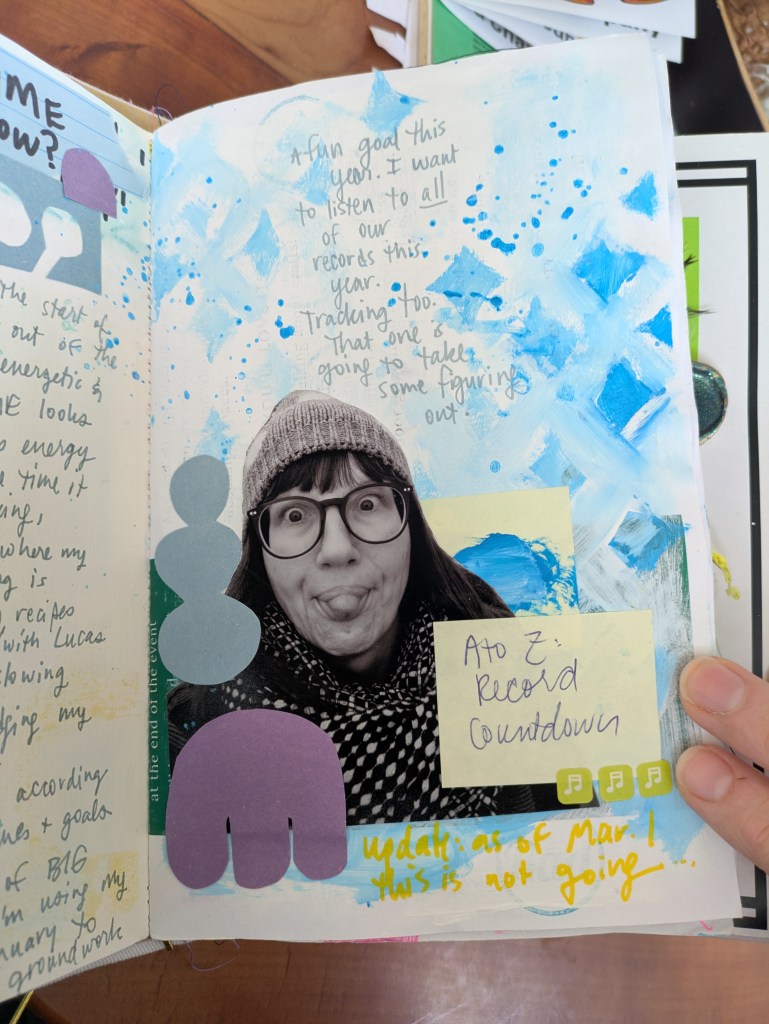 ME
ow?
the start of
out of the
energetic &
ME looks
energy
time, it
where my
is
recipes
with Lucas
my
according
+ goals
of BIG
I'm using my
to
groundwork
A fun goal this
year. I want
to listen to all
of our
records this
year.
Tracking too.
That one is
going to take
some figuring
out.
at the end of the event
A to Z:
Record
Countdown
update: as of Mar. 1
this is not going...